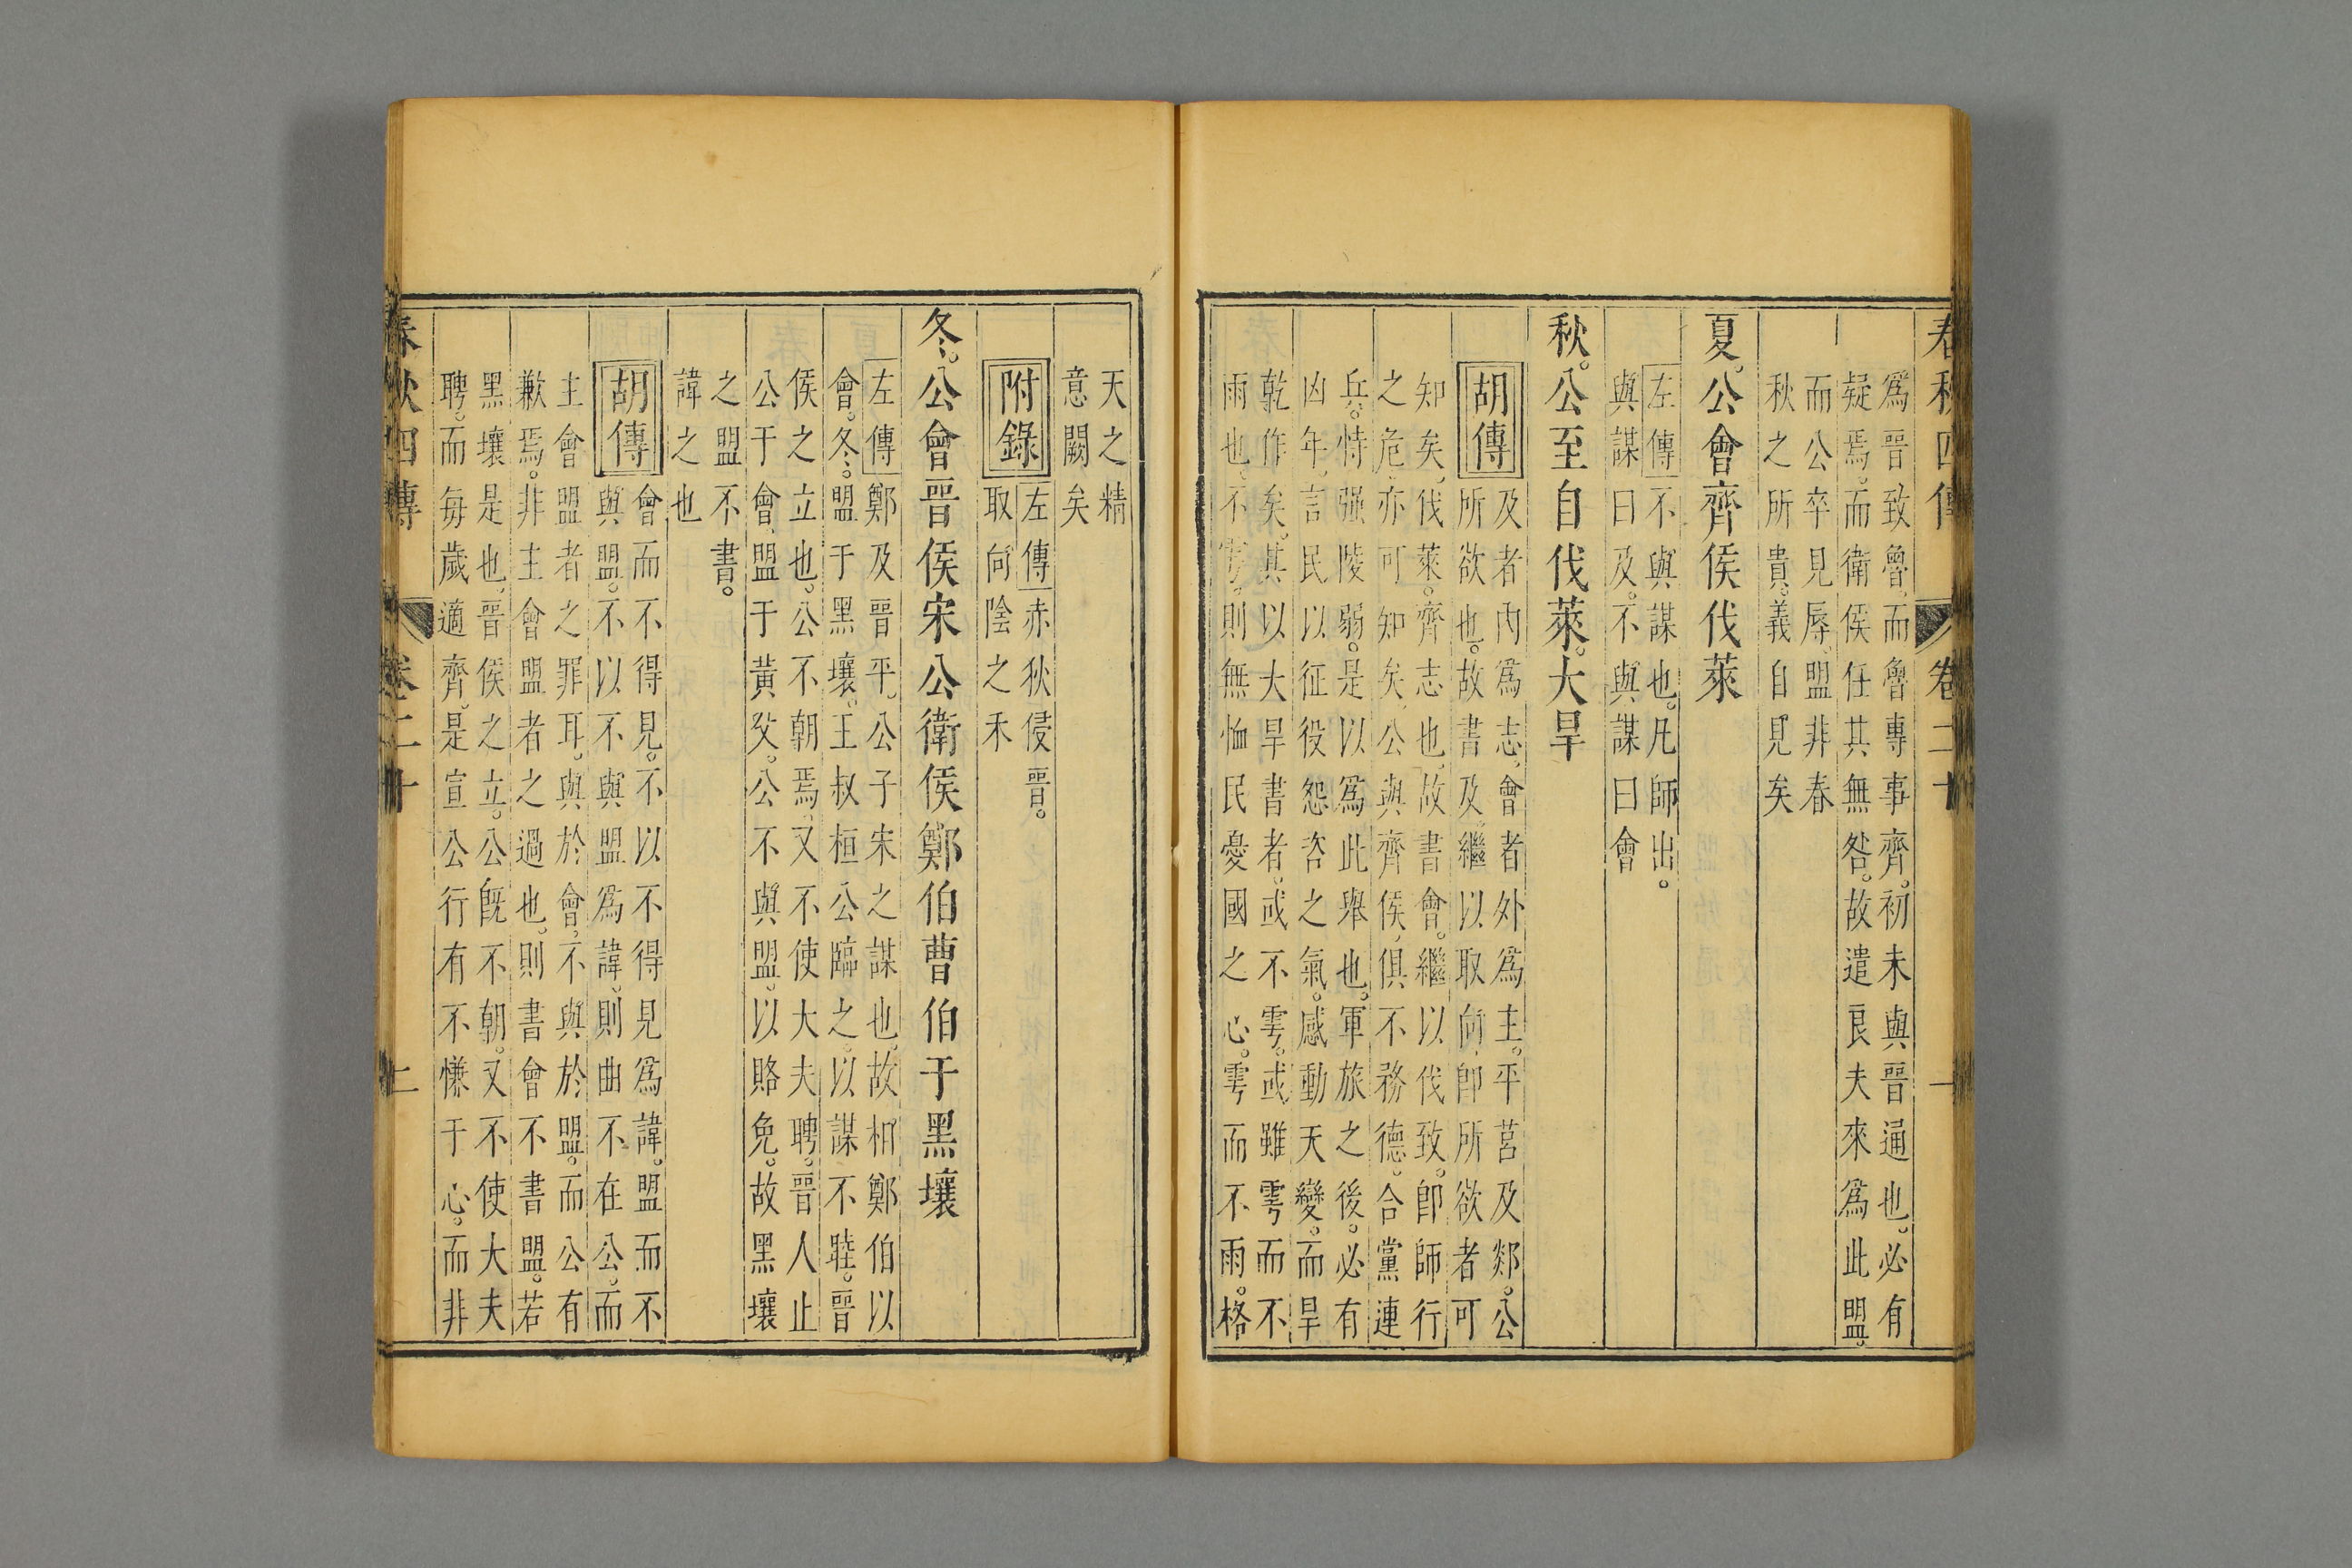 春秋四傳 卷二十 一
爲晉致魯。而魯專事齊。初未與晉通也。必有
疑焉。而衛侯任其無咎。故遣良夫來爲此盟。
而公卒見辱。盟非春
秋之所貴。義自見矣
夏。公會齊侯伐萊
左傳不與謀也。凡師出。
與謀曰及。不與謀曰會
秋。公至自伐萊。大旱
胡傳
及者內爲志。會者外爲主。平莒及郯。公
所欲也。故書及。繼以取向。卽所欲者可
知矣。伐萊。齊志也。故書會。繼以伐致。卽師行
之危。亦可知矣。公與齊侯。俱不務德。合黨連
兵。恃强陵弱。是以爲此舉也。軍旅之後。必有
凶年。言民以征役怨咨之氣。感動天變。而旱
乾作矣。其以大旱書者。或不雩。或雖雩而不
雨也。不雩。則無恤民憂國之心。雩而不雨。格
天之精
意闕矣
附錄
左傳赤狄侵晉。
取向陰之禾
冬。公會晉侯宋公衛侯鄭伯曹伯于黑壤
左傳鄭及晉平。公子宋之謀也。故相鄭伯以
會。冬。盟于黑壤。王叔桓公臨之。以謀不睦。晉
侯之立也。公不朝焉。又不使大夫聘。晉人止
公于會。盟于黃父。公不與盟。以賂免。故黑壤
之盟不書。
諱之也
胡傳
會而不得見。不以不得見爲諱。盟而不
與盟。不以不與盟爲諱。則曲不在公。而
主會盟者之罪耳。與於會。不與於盟。而公有
歉焉。非主會盟者之過也。則書會不書盟。若
黑壤是也。晉侯之立。公旣不朝。又不使大夫
聘。而每歲適齊。是宣公行有不慊于心。而非
春秋四傳 卷二十